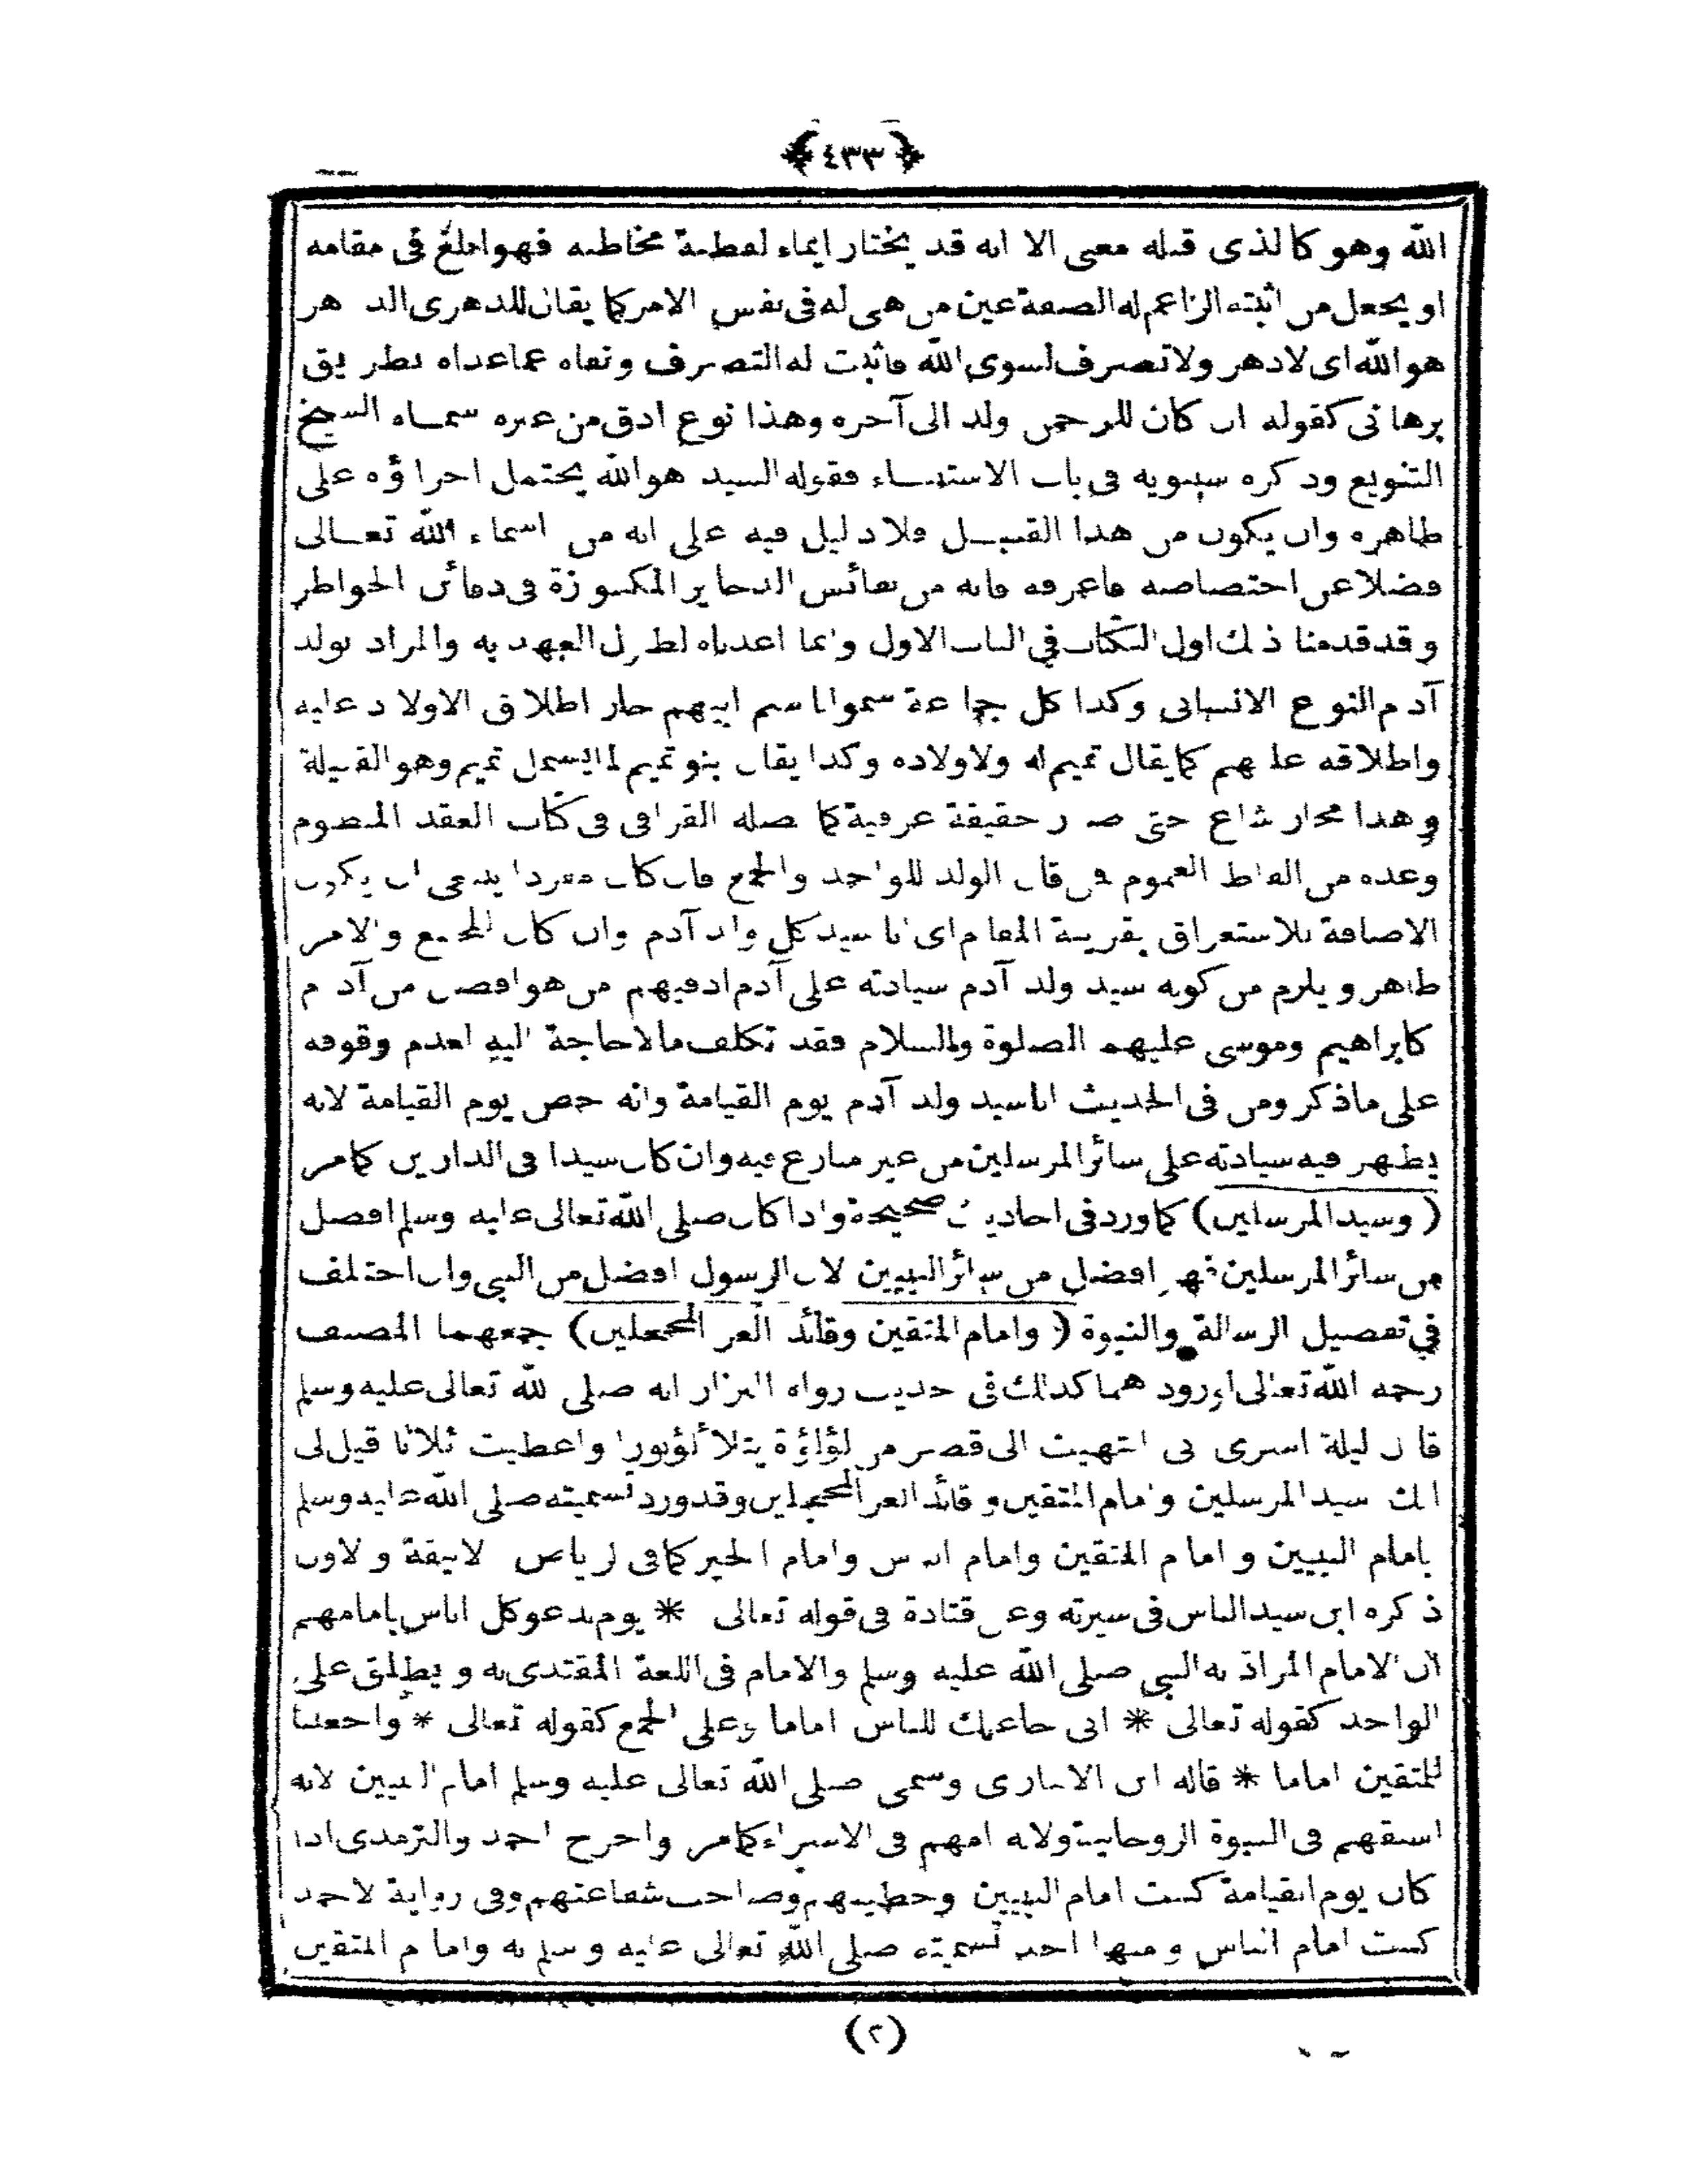 ﴿٤٣٣﴾
الله وهو كالذى قبله معنى الا انه قد يختار ايماء لفطنة مخاطبه فهو ابلغ فى مقامه
او يجعل من اثبته الزاعم له الصفة عين من هى له فى نفس الامر كما يقال للدهرى الدهر
هو الله اى لا دهر ولا تصرف لسوى الله فاثبت له التصرف ونفاه عما عداه بطريق
برهانى كقوله ان كان للرحمن ولد الى آخره وهذا نوع ادق من غيره سماه الشيخ
التنويع وذكره سيبويه فى باب الاستثناء فقوله السيد هو الله يحتمل اجراؤه على
ظاهره وان يكون من هذا القبيل فلا دليل فيه على انه من اسماء الله تعالى
فضلا عن اختصاصه فاعرفه فانه من نفائس الذخاير المكنوزة فى دفائن الخواطر
وقد قدمنا ذلك اول الكتاب فى الباب الاول وانما اعدناه لطول العهد به والمراد بولد
آدم النوع الانسانى وكذا كل جماعة سموا باسم ابيهم جاز اطلاق الاولاد عليه
واطلاقه عليهم كما يقال تميم له ولاولاده وكذا يقال بنو تميم لما يشمل تميم وهو القبيلة
وهذا مجاز شاع حتى صار حقيقة عرفية كما فصله القرافى فى كتاب العقد المنظوم
وعده من الفاظ العموم فمن قال الولد للواحد والجمع فان كان مفردا ينبغى ان يكون
الاضافة للاستغراق بقرينة المقام اى انا سيد كل ولد آدم وان كان للجمع فالامر
ظاهر ويلزم من كونه سيد ولد آدم سيادته على آدم اذ فيهم من هو افضل من آدم
كابراهيم وموسى عليهم الصلوة والسلام فقد تكلف مالا حاجة اليه لعدم وقوفه
على ما ذكر ومن فى الحديث انا سيد ولد آدم يوم القيامة وانه خص يوم القيامة لانه
يظهر فيه سيادته على سائر المرسلين من غير منازع فيه وان كان سيدا فى الدارين كما مر
(وسيد المرسلين) كما ورد فى احاديث صحيحة واذا كان صلى الله تعالى عليه وسلم افضل
من سائر المرسلين فهو افضل من سائر النبيين لان الرسول افضل من النبى وان اختلف
فى تفضيل الرسالة والنبوة (وامام المتقين وقائد الغر المحجلين) جمعهما المصنف
رحمه الله تعالى لورودهما كذلك فى حديث رواه البزار انه صلى الله تعالى عليه وسلم
قال ليلة اسرى بى انتهيت الى قصر من لؤلؤة يتلألؤ نورا واعطيت ثلاثا قيل لى
انك سيد المرسلين وامام المتقين وقائد الغر المحجلين وقد ورد تسميته صلى الله عليه وسلم
بامام النبيين وامام المتقين وامام الناس وامام الخير كما فى الرياض الانيقة والاول
ذكره ابن سيد الناس فى سيرته وعن قتادة فى قوله تعالى * يوم ندعو كل اناس بامامهم
ان الامام المراد به النبى صلى الله عليه وسلم والامام فى اللغة المقتدى به ويطلق على
الواحد كقوله تعالى * انى جاعلك للناس اماما وعلى الجمع كقوله تعالى * واجعلنا
للمتقين اماما * قاله ابن الانبارى وسمى صلى الله تعالى عليه وسلم امام النبيين لانه
اسبقهم فى النبوة الروحانية ولانه امهم فى الاسراء كما مر واخرج احمد والترمذى اذا
كان يوم القيامة كنت امام النبيين وخطيبهم وصاحب شفاعتهم وفى رواية لاحمد
كنت امام الناس ومنها اخذ تسميته صلى الله تعالى عليه وسلم به وامام المتقين
(٢)